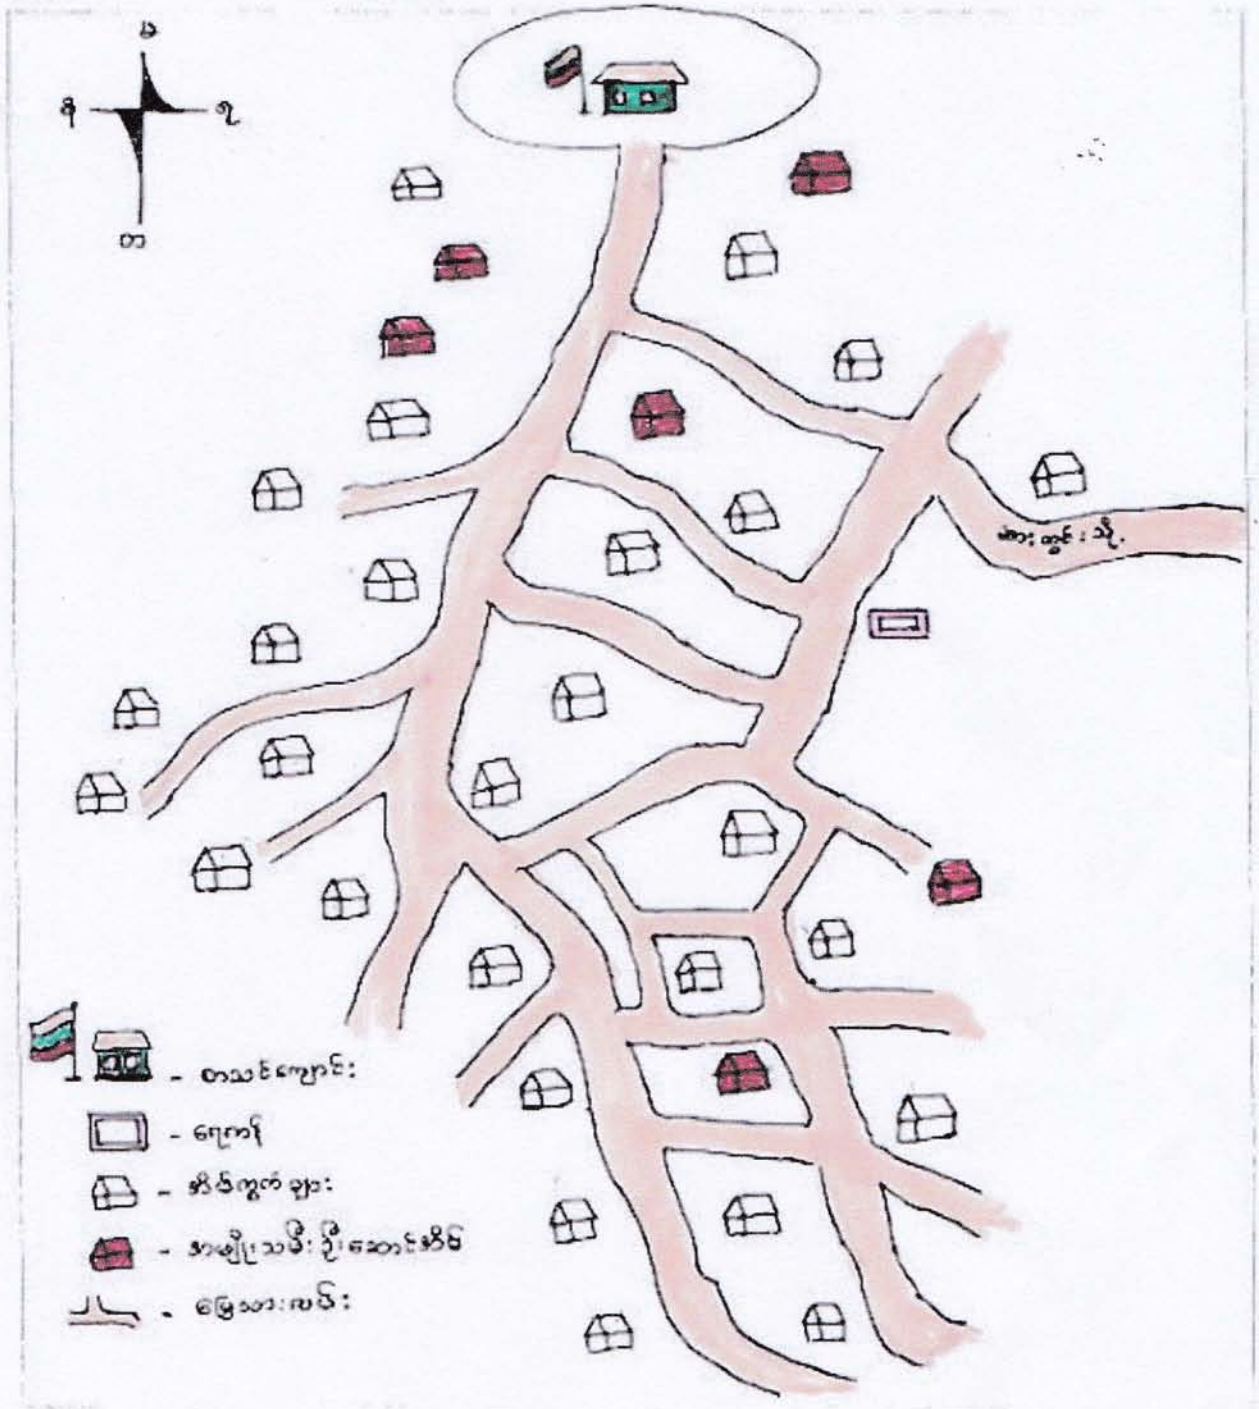 မ
စ
ရ
တ
စာသင်ကျောင်း
- ရေကန်
- အိမ်ကွက်များ
- အမျိုးသမီးဦးဆောင်အိမ်
- မြေသားလမ်း